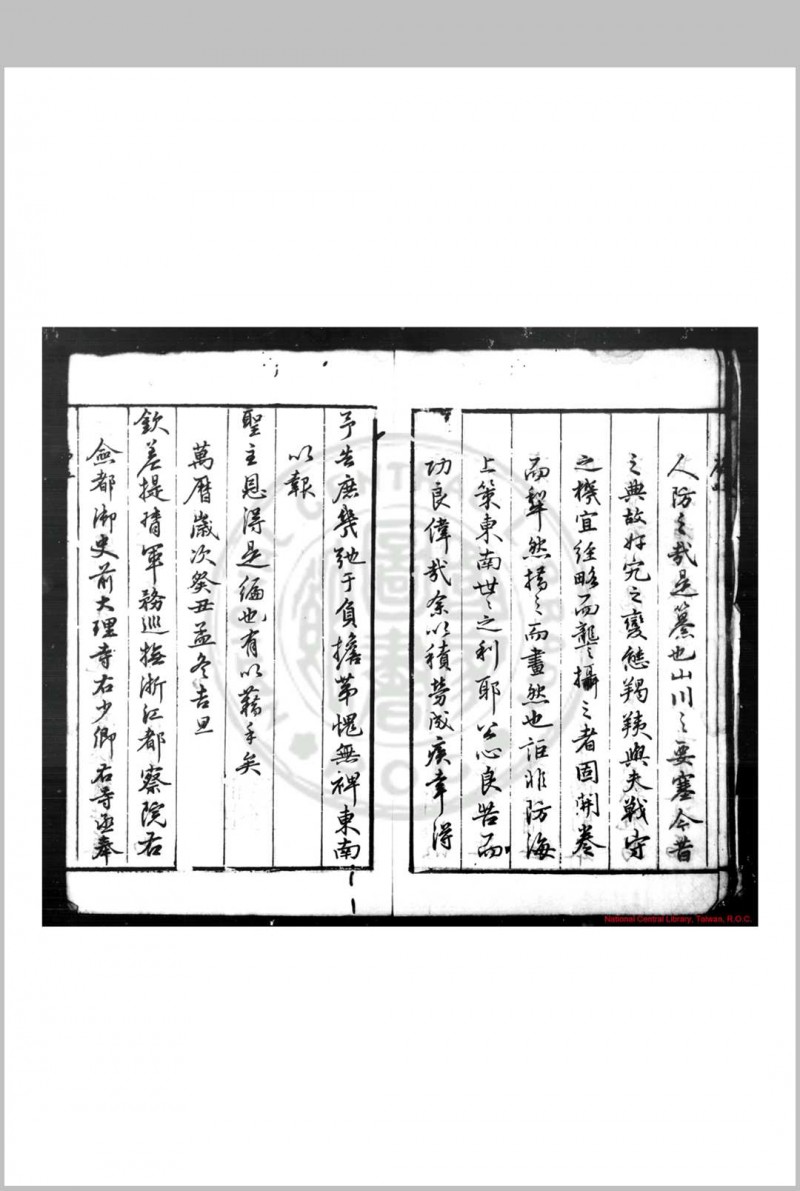 人防之哉是纂也山川之要塞今昔
之典故奸宄之變態羯羠與夫戰守
之機宜經略而龔之攝之者固開卷
而犁然撫之而畫然也詎非防海
上策東南世之之利耶公心良苦而
功良偉哉余以積勞成疾幸得
予告庶幾弛于負擔第愧無裨東南
以報
聖主恩得是編也有以藉手矣
萬曆歲次癸丑孟冬吉旦
欽差提督軍務巡撫浙江都察院右
僉都御史前大理寺右少卿右寺丞奉
National Central Library, Taiwan, R.O.C.